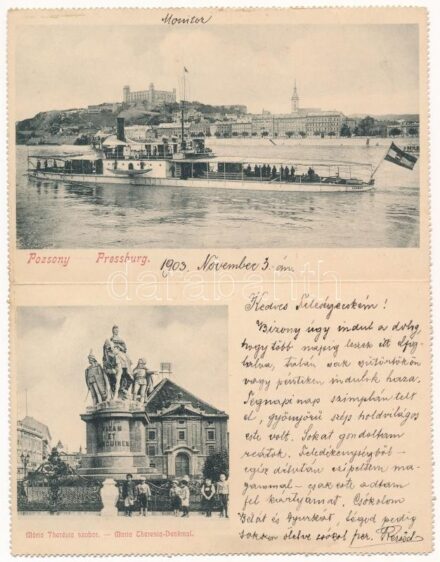 Monitor
Pozsony Pressburg. 1903. November 3-án
darabanth
Kedves Feleségecském!
Bizony úgy indul a dolog,
hogy több napig leszek itt
talán csak csütörtökön
vagy pénteken indulok haza.
Tegnapi nap szimplán telt
el, gyönyörű szép holdvilágos
este volt. Sokat gondoltam
reátok.
egész délután czipeltem ma-
gammal – csak este adtam
fel kártyámat. Csókolom
Bélát és Gyurkát, Téged pedig
sokszor ölelve csókol
VITAM
ET
SANGUINEM
Mária Therézia szobor. — Maria Theresia-Denkmal.